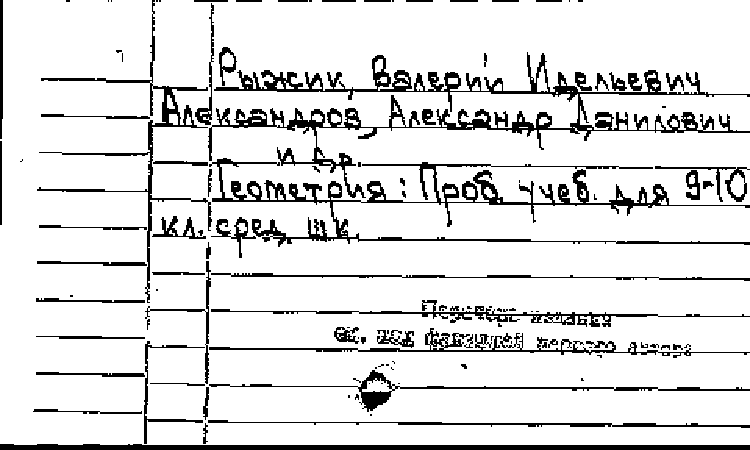 Рыжик, Валерий Идельевич
Александров, Александр Данилович
и др.
Геометрия: Проб. учеб. для 9-10
кл. сред. шк.
Перечень изданий
см. под фамилией первого автора